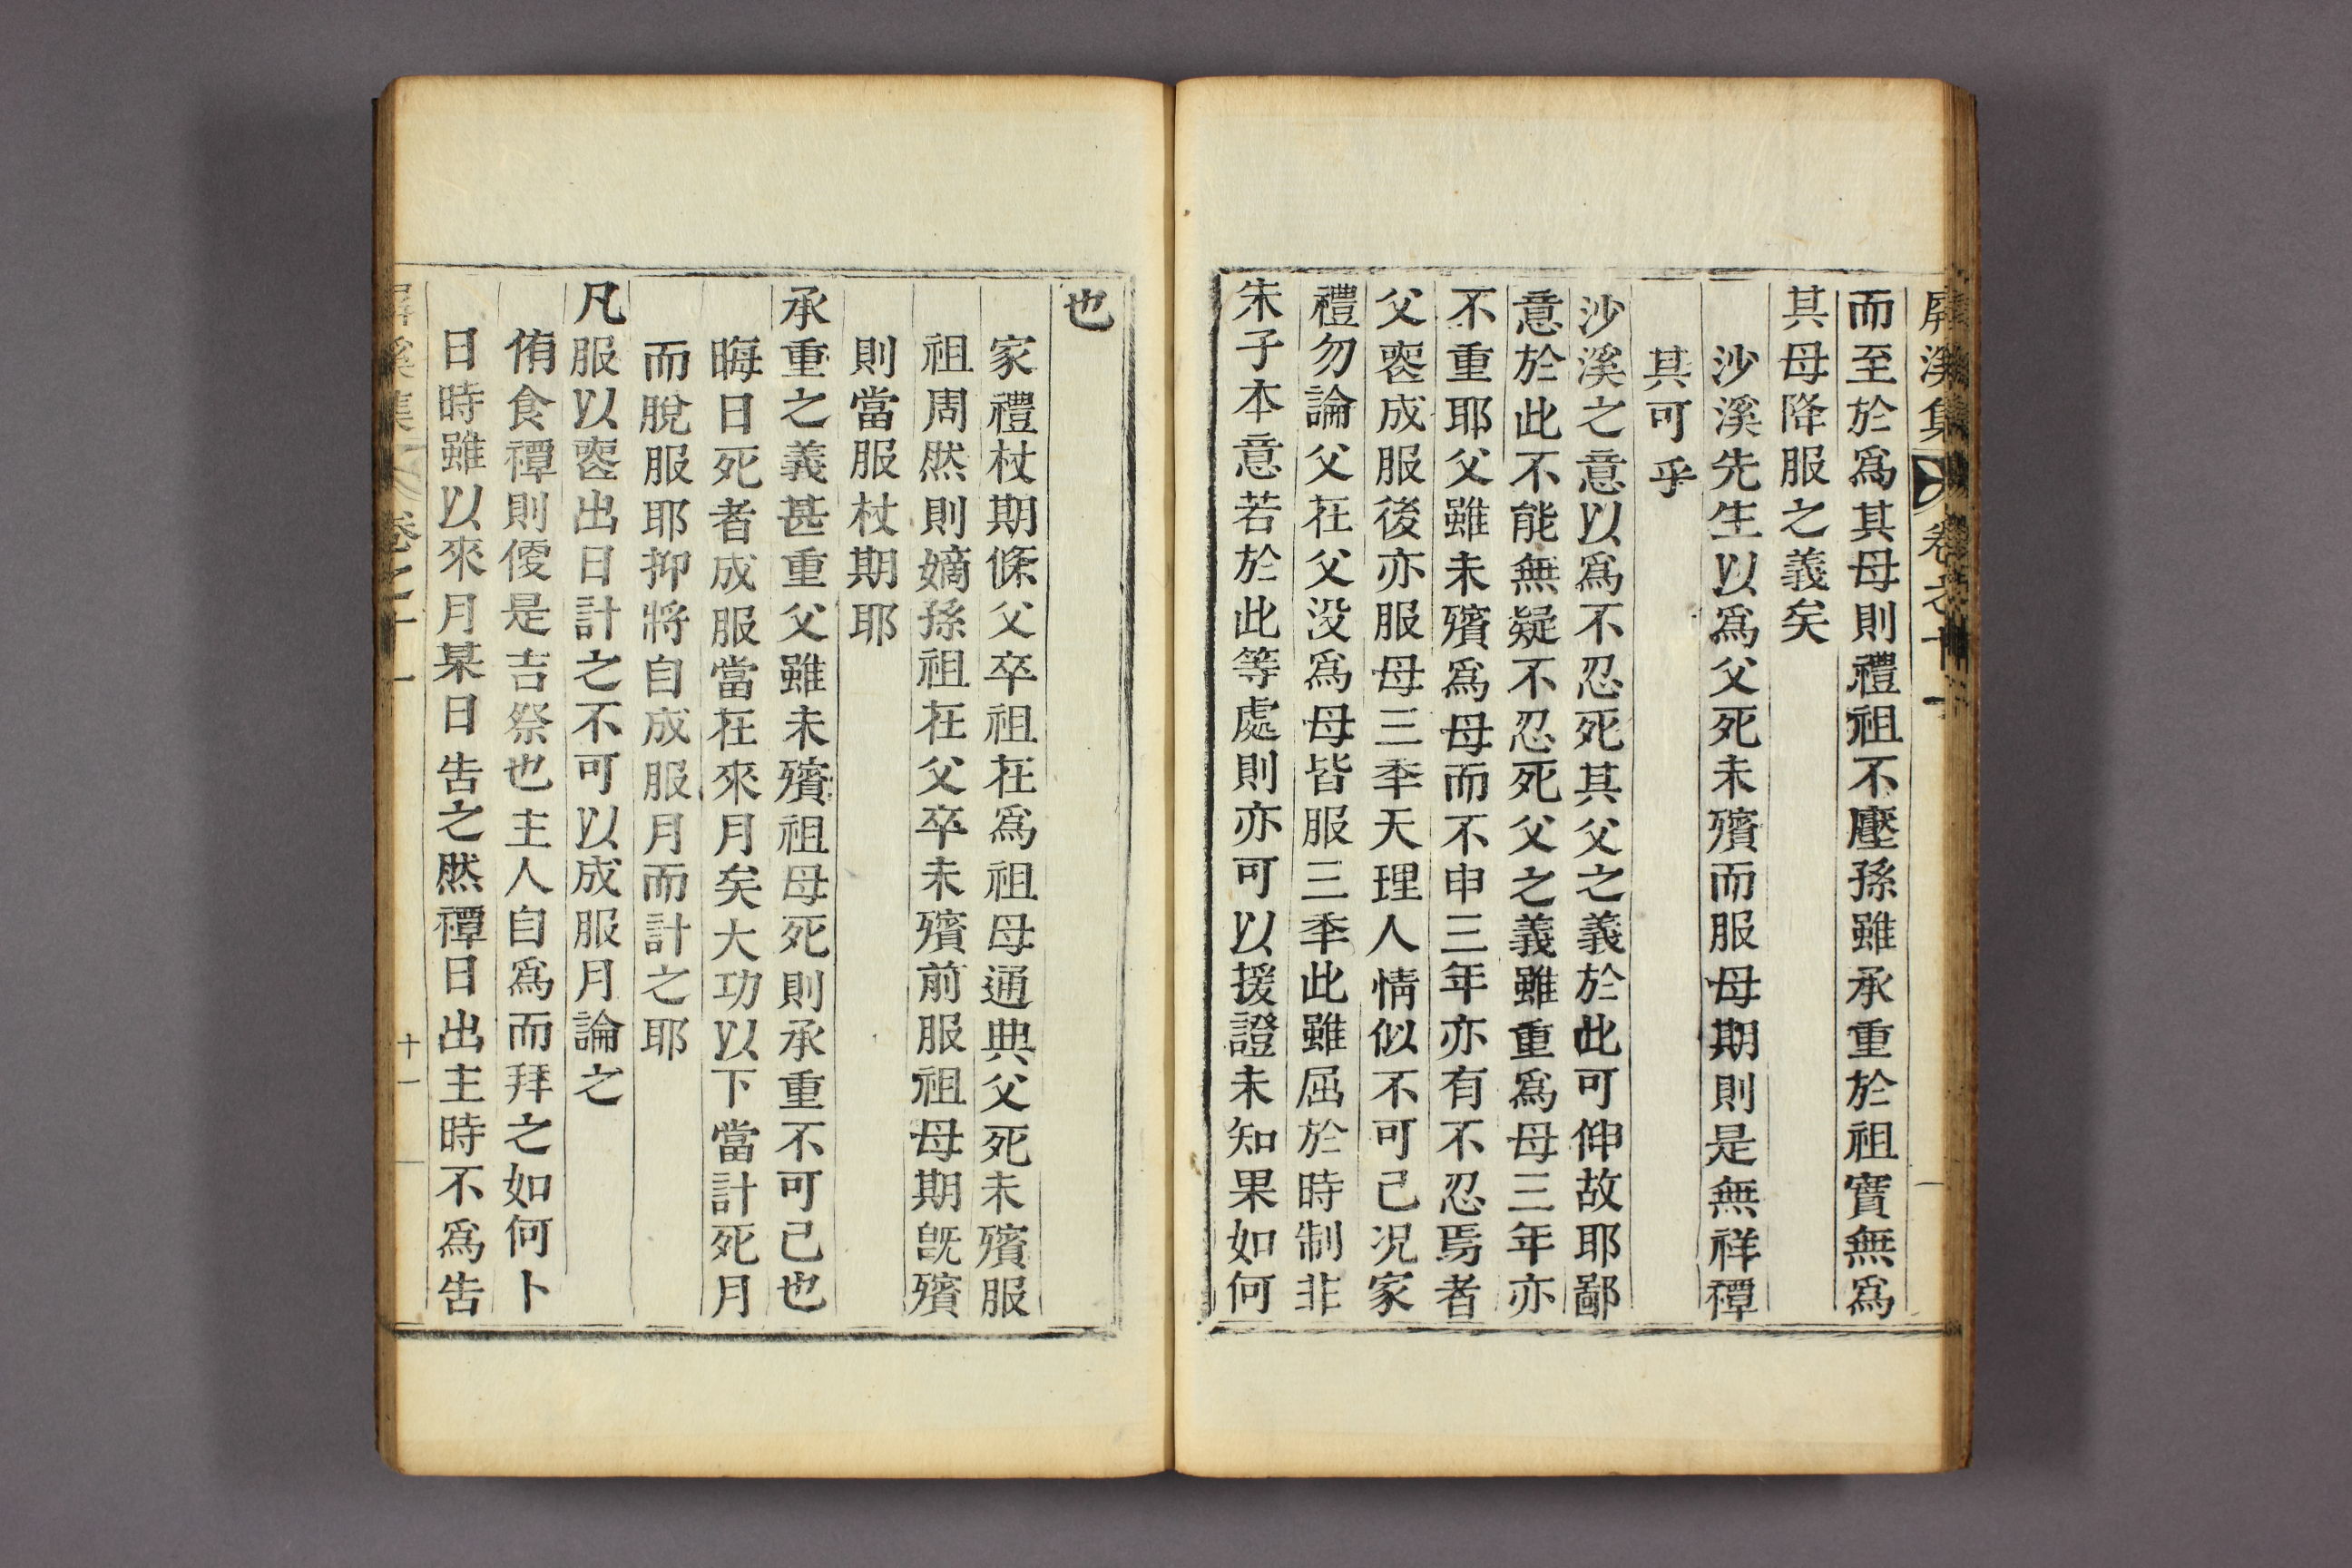 屛溪集 卷之十一
而至於爲其母則禮祖不壓孫雖承重於祖實無爲
其母降服之義矣
沙溪先生以爲父死未殯而服母期則是無祥禫
其可乎
沙溪之意以爲不忍死其父之義於此可伸故耶鄙
意於此不能無疑不忍死父之義雖重爲母三年亦
不重耶父雖未殯爲母而不申三年亦有不忍焉者
父喪成服後亦服母三秊天理人情似不可已況家
禮勿論父在父没爲母皆服三秊此雖屈於時制非
朱子本意若於此等處則亦可以援證未知果如何
也
家禮杖期條父卒祖在爲祖母通典父死未殯服
祖周然則嫡孫祖在父卒未殯前服祖母期旣殯
則當服杖期耶
承重之義甚重父雖未殯祖母死則承重不可已也
晦日死者成服當在來月矣大功以下當計死月
而脫服耶抑將自成服月而計之耶
凡服以喪出日計之不可以成服月論之
侑食禫則便是吉祭也主人自爲而拜之如何卜
日時雖以來月某日告之然禫日出主時不爲告
屛溪集 卷之十一 十一